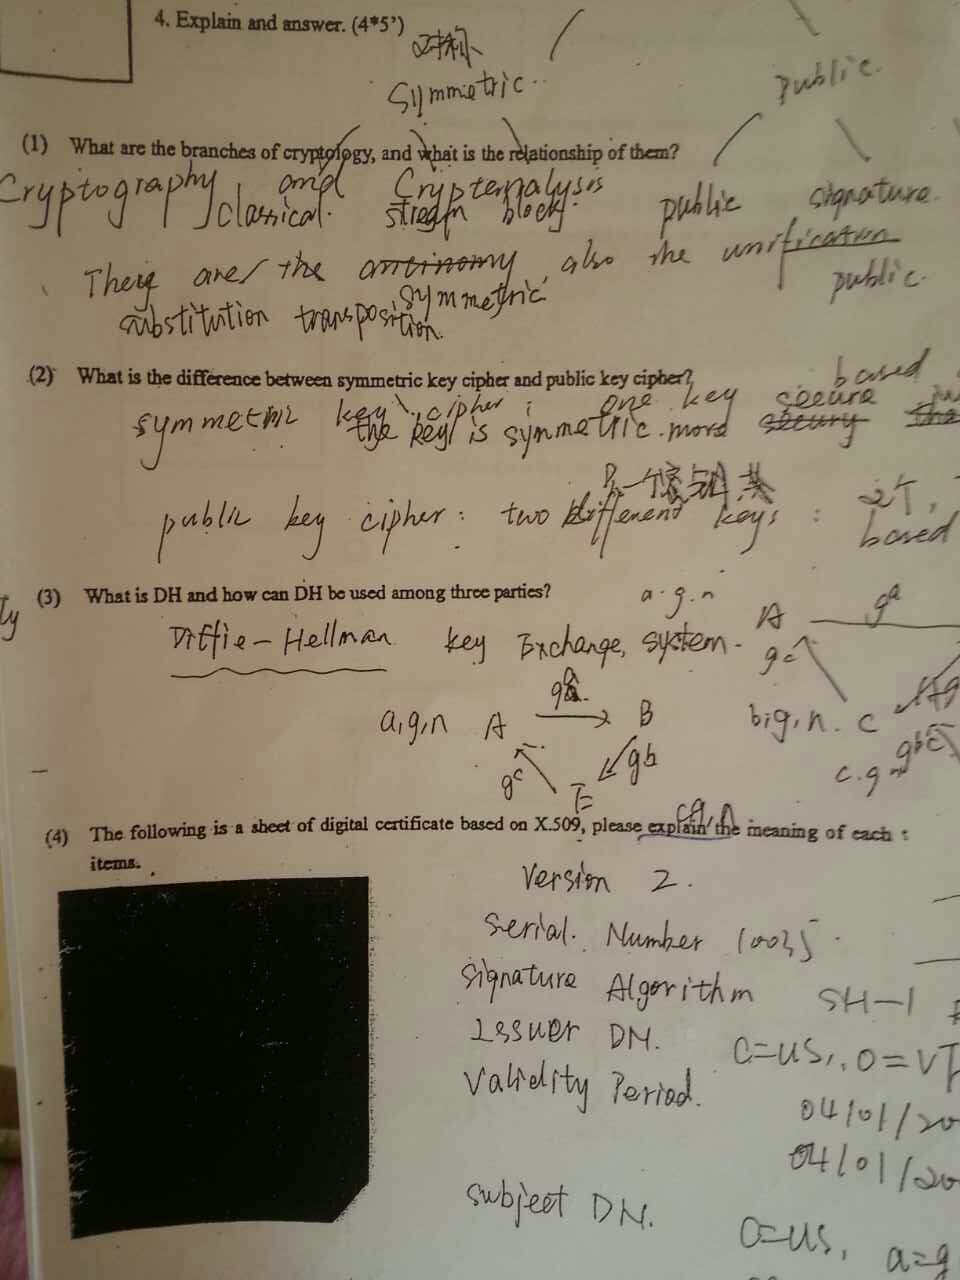 4. Explain and answer. (4*5’)
对称
Symmetric
public.
(1) What are the branches of cryptology, and what is the relationship of them?
Cryptography and Cryptanalysis
classical. stream block. public signature.
There are the antinomy, also the unification
symmetric public.
substitution transposition.
(2) What is the difference between symmetric key cipher and public key cipher?
based
symmetric key cipher: one key secure
the key is symmetric. more
密钥
public key cipher: two different keys : 2个,
based
(3) What is DH and how can DH be used among three parties?
a.g.n
A ga
Diffie-Hellman key Exchange, system.
gc
ga
a,g,n A B
b,g,n. C
gb
gbc
gc
c.g
c,g,n
(4) The following is a sheet of digital certificate based on X.509, please explain the meaning of each
items.
Version 2.
Serial. Number 10035
Signature Algorithm SH-1
Issuer DN. C=US, O=VT
Validity Period. 04/01/20
04/01/20
subject DN. C=US,